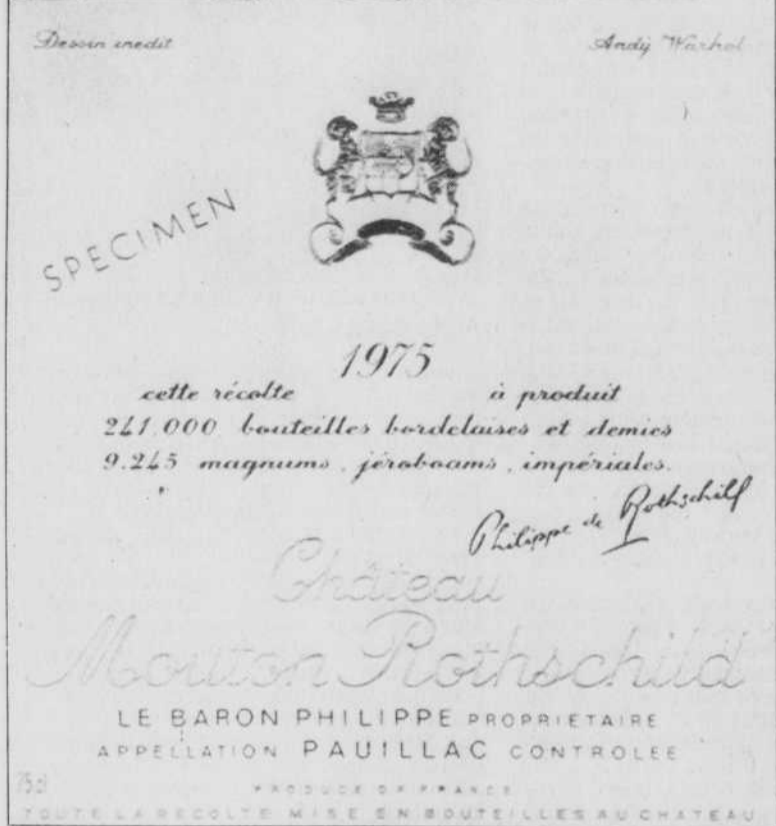 Dessin inedit
Andy Warhol
SPECIMEN
1975
cette récolte à produit
241.000 bouteilles bordelaises et demies
9.245 magnums, jéroboams, impériales.
Philippe de Rothschild
Château
Mouton Rothschild
LE BARON PHILIPPE PROPRIETAIRE
APPELLATION PAUILLAC CONTROLEE
75cl
PRODUCE OF FRANCE
TOUTE LA RECOLTE MISE EN BOUTEILLES AU CHATEAU